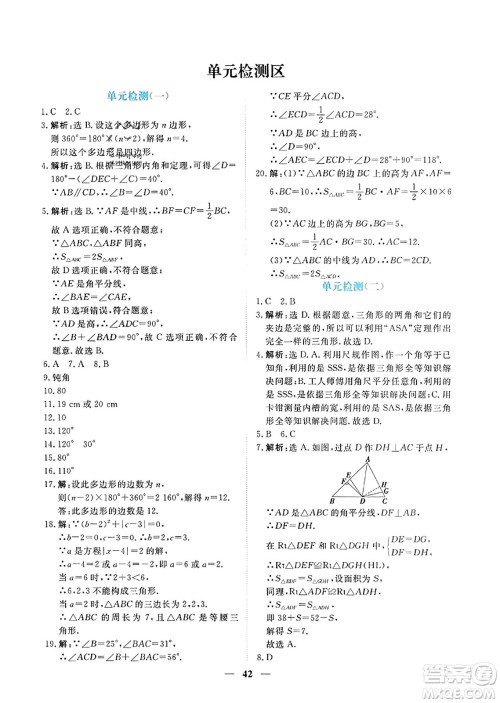 单元检测区
单元检测(一)
1. C 2. C
3. 解析:选 B. 设这个多边形为 n 边形,
则 360°=180°×(n-2)
所以这个多边形是四边形.
4. 解析:选 B. 根据三角形内角和定理,可得
180°-∠(DEC+∠C)=40°.
∵AB∥CD,∴∠B=40°.
5. 解析:选 B. ∵AF是中线,∴BF=CF=1/2BC,
故 A 选项正确,不符合题意;
∵△ABC,△ABF 同高,
∴S△ABC=2S△ABF,
故 D 选项正确,不符合题意;
∵AE 是角平分线,
∴∠BAE=∠CAE,
故 C 选项正确,不符合题意;
∴∠ADC=90°,
故 B 选项错误,符合题意;
故选 B.
6. A 7. D 8. B
9. 钝角
10. 80
11. 19 cm 或 20 cm
12. 120°
13. 60°
14. 120° 30°
15. 80°
16. 110°
17. 解:设此多边形的边数为 n,
则(n-2)×180°=1 800°,解得 n=12.
答:此多边形的边数为 12.
18. 解:∵(b-2)²+|c-3|=0,
∴b-2=0,c-3=0,∴b=2,c=3.
∵a 是方程|x-4|=2 的解,
∴a-4=±2,∴a=6 或 2.
当 a=6 时,∵2+3<6,
∴2,3,6 不能构成三角形.
当 a=2 时,△ABC 的三边长为 2,2,3.
∴△ABC 的周长为 7,△ABC 是等腰三
角形.
19. 解:∵∠B=25°,∠BAC=31°,
∴∠ACD=∠B+∠BAC=56°.
∵CE 平分∠ACD,
∴∠ECD=1/2∠ACD=28°.
∵AD 是 BC 边上的高,
∴∠D=90°,
∴∠AEC=∠D+∠ECD=118°.
20. 解:(1)∵△ABC 的边 BC 上的高 AF=
6,BC=10,∴△ABC 的面积=1/2×10×6
=30.
(2)∵△ABD 的边 BD 上的高 BG=5,
S△ABC=30,AD 为△ABC 的中线,
∴S△ABD=1/2S△ABC=15,∴AD=6.
单元检测(二)
1. C 2. B
3. 解析:选 D. 由题意,三角形的两角和它们的
夹边是完整的,所以可以利用“ASA”定理作出
完全一样的三角形.
4. 解析:选 D. A. 利用尺规作图,作一个角等于已
知角,利用了 SSS,是依据三角形全等知识解
决问题;B. 工人师傅用角尺平分任意角,利用
了 SSS,是依据三角形全等知识解决问题;C. 用
卡钳测量内槽的宽,利用了 SAS,是依据三角
形全等知识解决问题.
5. B 6. C
7. 解析:选 A. 如图,过点 D 作 DH⊥AC 于点 H,
A
F
E
G
H
B
D
C
∵AD 是△ABC 的角平分线,DF⊥AB,
∴DF=DH.在 Rt△DEF 和 Rt△DGH 中,{DE=DG,
DF=DH,
∴Rt△DEF≌Rt△DGH(HL).
∴△DEF 和△DGH 的面积相等.
同理 Rt△ADF≌Rt△ADH,
∴S△ADF=S△ADH,
即 38+S=52-S,
解得 S=7.故选 A.
8. D
42